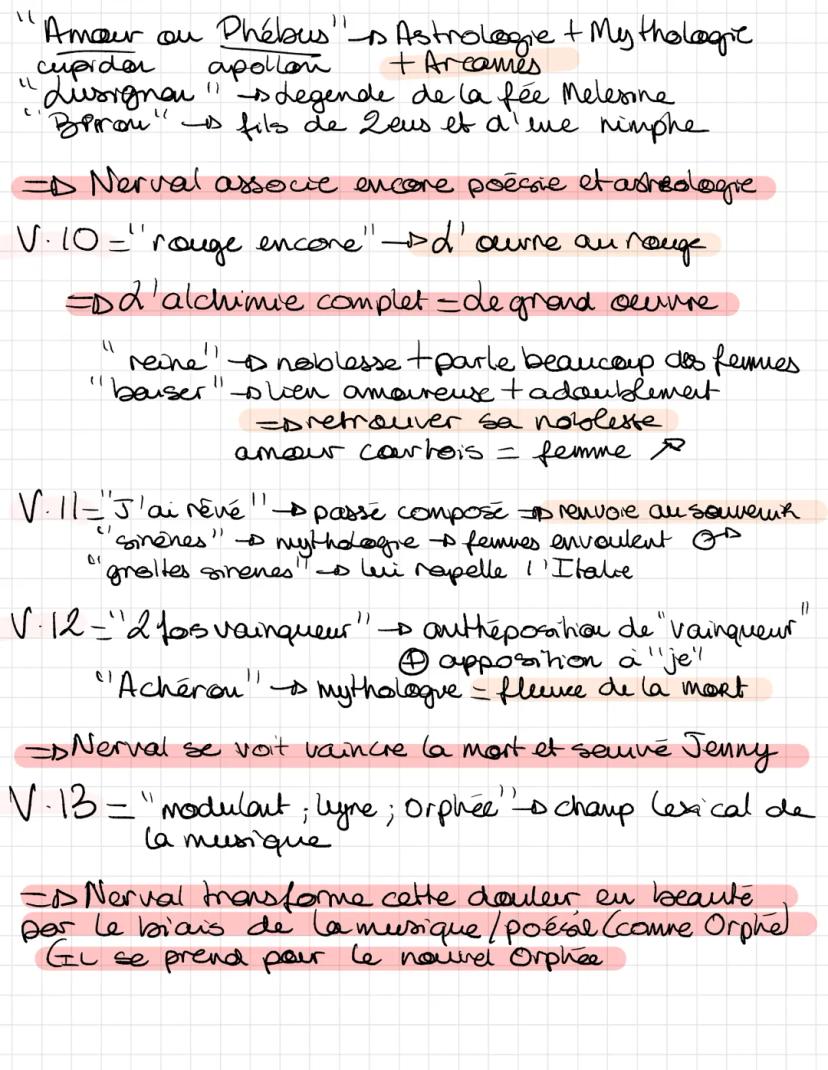 "Amour ou Phébus" → Astrologie + Mythologie
cupidon apollon + Arcanes
"Lusignan" → Legende de la fée Melesine
"Biron" → fils de Zeus et d'une nimphe
⇒ Nerval associe encore poésie et astrologie
V.10 = "rouge encore" → L'œuvre au rouge
⇒ L'alchimie complet = le grand œuvre
"reine" → noblesse + parle beaucoup des femmes
"baiser" → lien amoureuse + adoublement
⇒ retrouver sa noblesse
amour courtois = femme ↗
V.11 = "J'ai rêvé" → passé composé ⇒ renvoie au souvenir
"sirènes" → mythologie → femmes envoutent
"grottes sirenes" → lui rapelle l'Italie
V.12 = "2 fois vainqueur" → anthéposition de "vainqueur"
⊕ apposition à "je"
"Achéron" → mythologue = fleuve de la mort
⇒ Nerval se voit vaincre la mort et sauvé Jenny
V.13 = "modulant ; lyre ; Orphée" → champ lexical de
la musique
⇒ Nerval transforme cette douleur en beauté
par le biais de la musique / poésie (comme Orphée)
GL se prend pour le nouvel Orphée